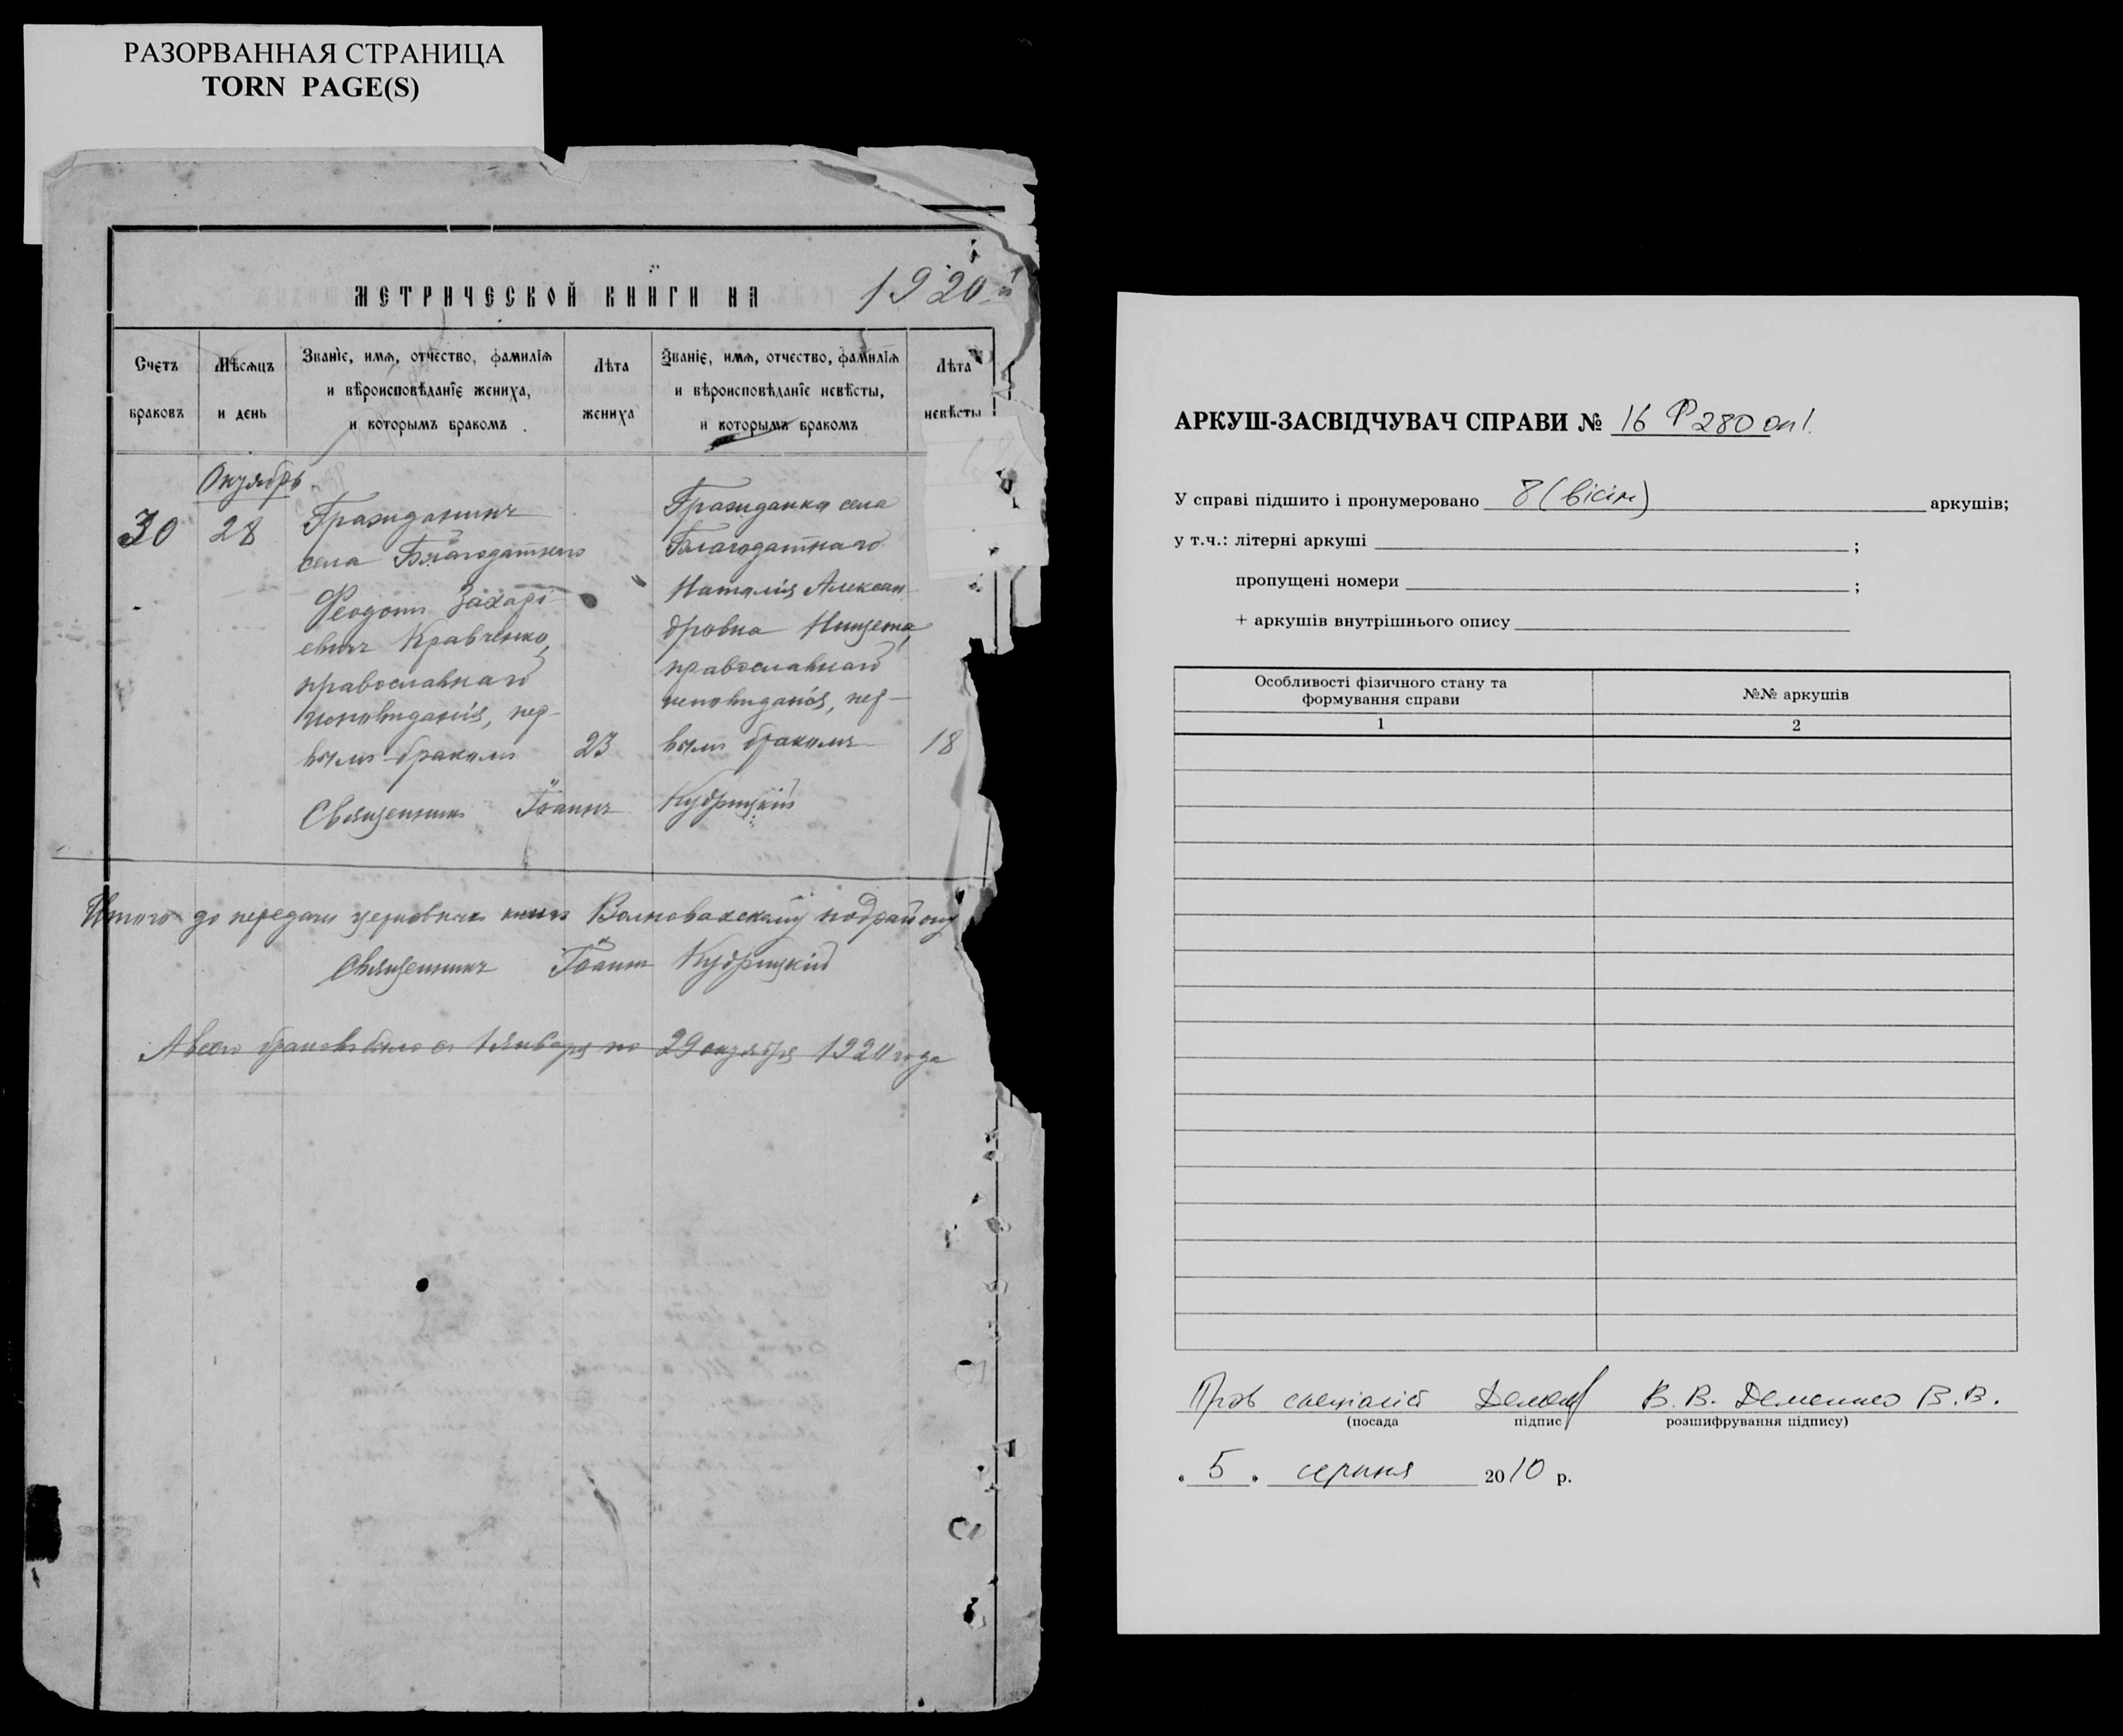 РАЗОРВАННАЯ СТРАНИЦА
TORN PAGE(S)
МЕТРИЧЕСКОЙ КНИГИ НА 1920
Счетъ браковъ
Мѣсѧцъ и день
Званїе, имѧ, отчество, фамилїѧ
и вѣроисповѣданїе жениха,
и которымъ бракомъ
Лѣта жениха
Званїе, имѧ, отчество, фамилїѧ
и вѣроисповѣданїе невѣсты,
и которымъ бракомъ
Лѣта невѣсты
Октябрь
30
28
Гражданинъ
села Благодатнаго
Феодотъ Захарі-
евичъ Кравченко,
православнаго
исповиданія, пер-
вымъ бракомъ
23
Гражданка села
Благодатнаго
Наталія Алексан-
дровна Нищета,
православнаго
исповиданія, пер-
вымъ бракомъ
18
Священникъ Іоаннъ Кудрицкій
Итого до передачи церковныхъ книгъ Волновахскому подрайону
Священникъ Іоаннъ Кудрицкій
А всего браковъ было съ 1 января по 29 октября 1920 года
АРКУШ-ЗАСВІДЧУВАЧ СПРАВИ № 16 Ф 280 оп 1.
У справі підшито і пронумеровано 8 (вісім) аркушів;
у т.ч.: літерні аркуші ;
пропущені номери ;
+ аркушів внутрішнього опису
Особливості фізичного стану та
формування справи
№№ аркушів
1
2
Пров спеціаліст В. В. Деменко В.В.
(посада підпис розшифрування підпису)
" 5 " серпня 2010 р.